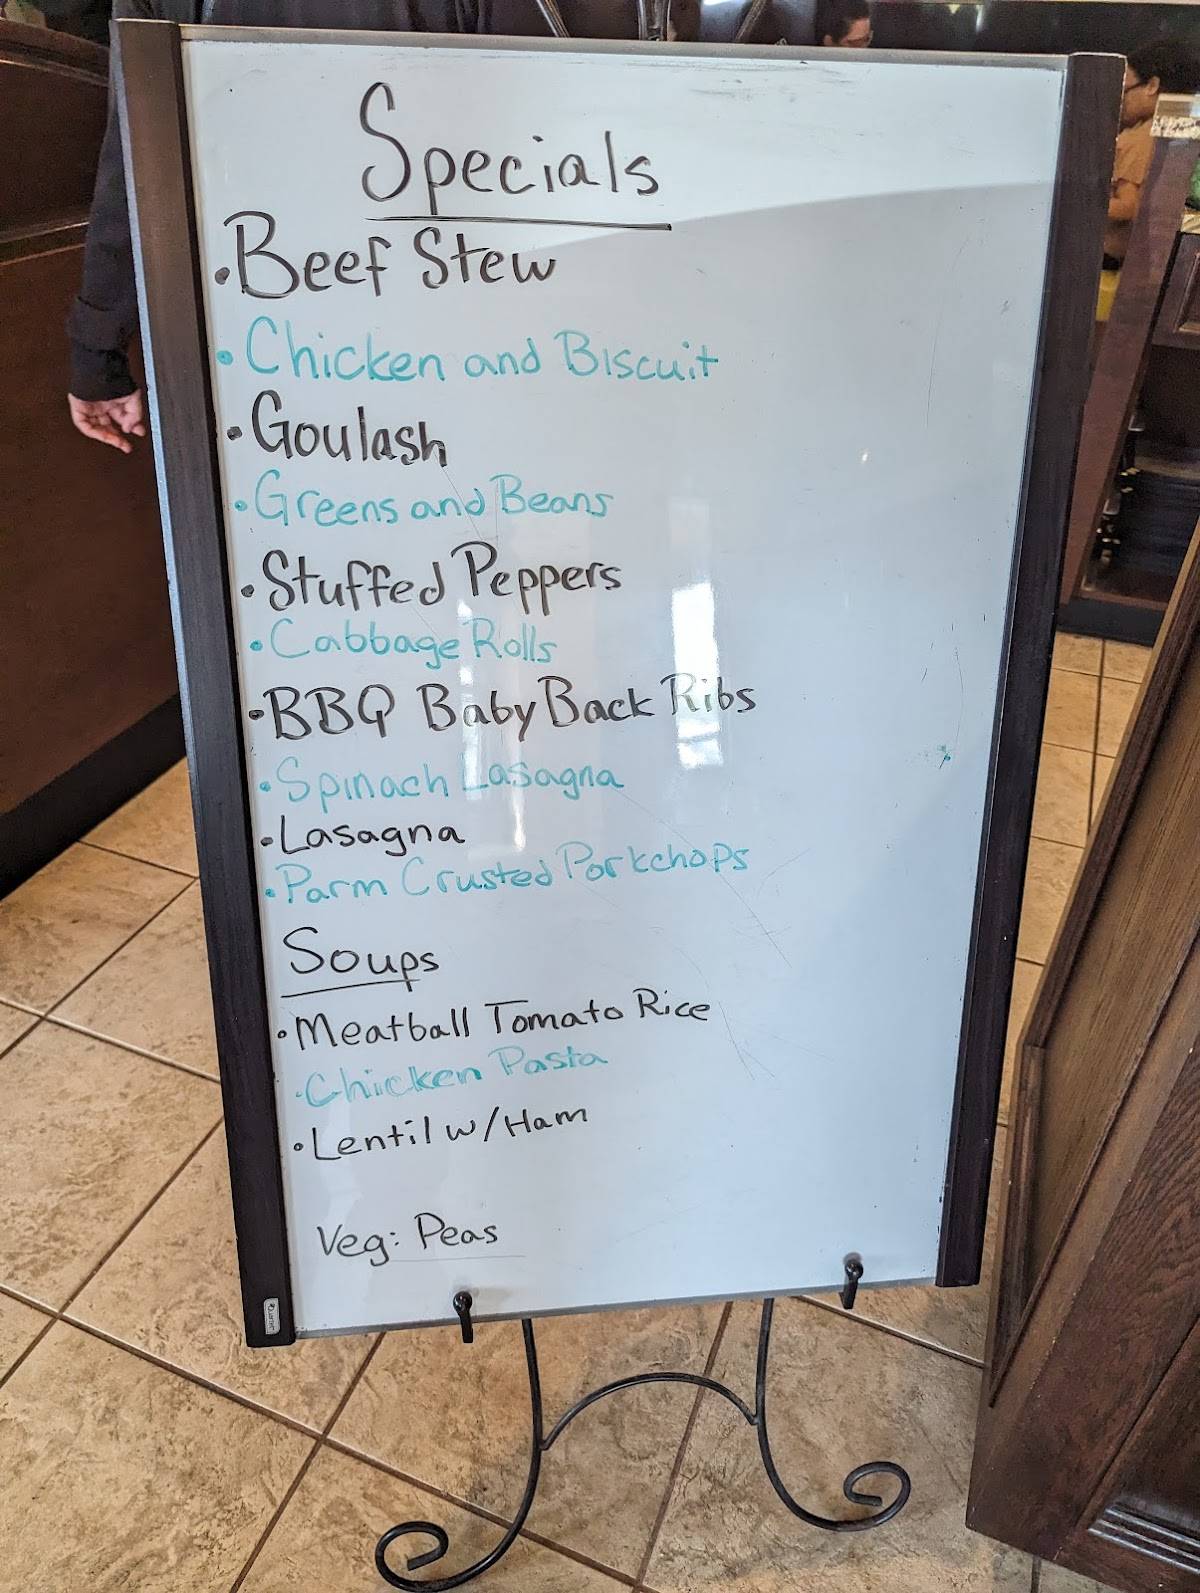 Specials
• Beef Stew
• Chicken and Biscuit
• Goulash
• Greens and Beans
• Stuffed Peppers
• Cabbage Rolls
• BBQ Baby Back Ribs
• Spinach Lasagna
• Lasagna
• Parm Crusted Porkchops
Soups
• Meatball Tomato Rice
• Chicken Pasta
• Lentil w/Ham
Veg: Peas